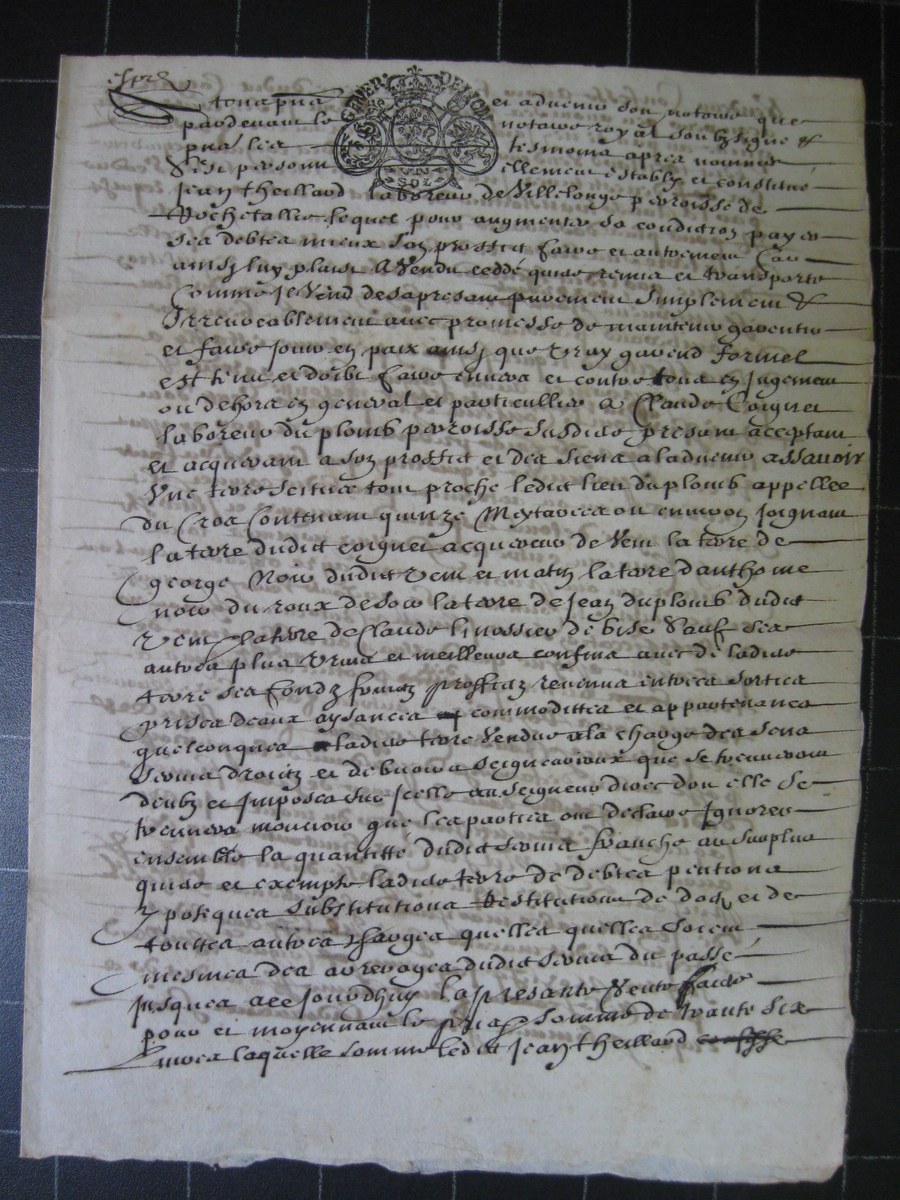 expédié
GENER. DE LION
VN SOL
A tous pñs et advenir soit notoire que
pardevant le notaire royal soubzsigné &
pñt les tesmoins apres nommés
s'est personnellement estably et constitué
jean theillard laboreur de Villelonge perroisse de
Rochetallie lequel pour augmenter sa condition payer
ses debtes mieux son proffit faire et autrement car
ainsy luy plaict A Vendu ceddé quitte remis et transporté
Comme Il Vend des a presant purement simplement &
Irrevocablement avec promesse de maintenir garentir
et faire jouir en paix ainsy que Vray garend formel
est tenu et doibt faire envers et contre tous en Jugement
ou dehors en general et particullier a Claude Coignet
laboreur du plomb perroisse susdite presant acceptant
et acquerant a son proffit et des siens a ladvenir assavoir
Une terre scituée tout proche ledict lieu du plomb appellée
du Cros Contenant quinze Meytarees ou environ Joignant
la terre dudict coignet acquereur de Vent la terre de
george Noir dudict Vent et matin la terre d'anthoine
noir du roux de soir la terre de Jean duplomb dudict
Vent la terre de Claude linossier de bise Sauf ses
autres plus Vrais et meilleurs confins avec de ladite
terre ses fondz fruictz proffitz revenus entrees sorties
prises deaux aysances commodittes et appartenances
quelconques ladite terre Vendue a la charge des sens
servis droictz et debvoirs seigneuriaux que se treuveront
deubz et Imposes sur Icelle au seigneur direct dont elle se
treuvera mouvoir que les parties ont declaré Ignorer
ensemble la quantitté dudict servis franche au surplus
quitte et exempte ladite terre de debtes pentions
ypoteques substitutions restitutions de dot et de
touttes autres charges quelles quelles soient
mesmes des arreyrages dudict servis du passé
jusques a ce Jourdhuy la presante Vente faicte
pour et moyennant le prix Somme de trante six
Livres laquelle somme ledict Jean theillard